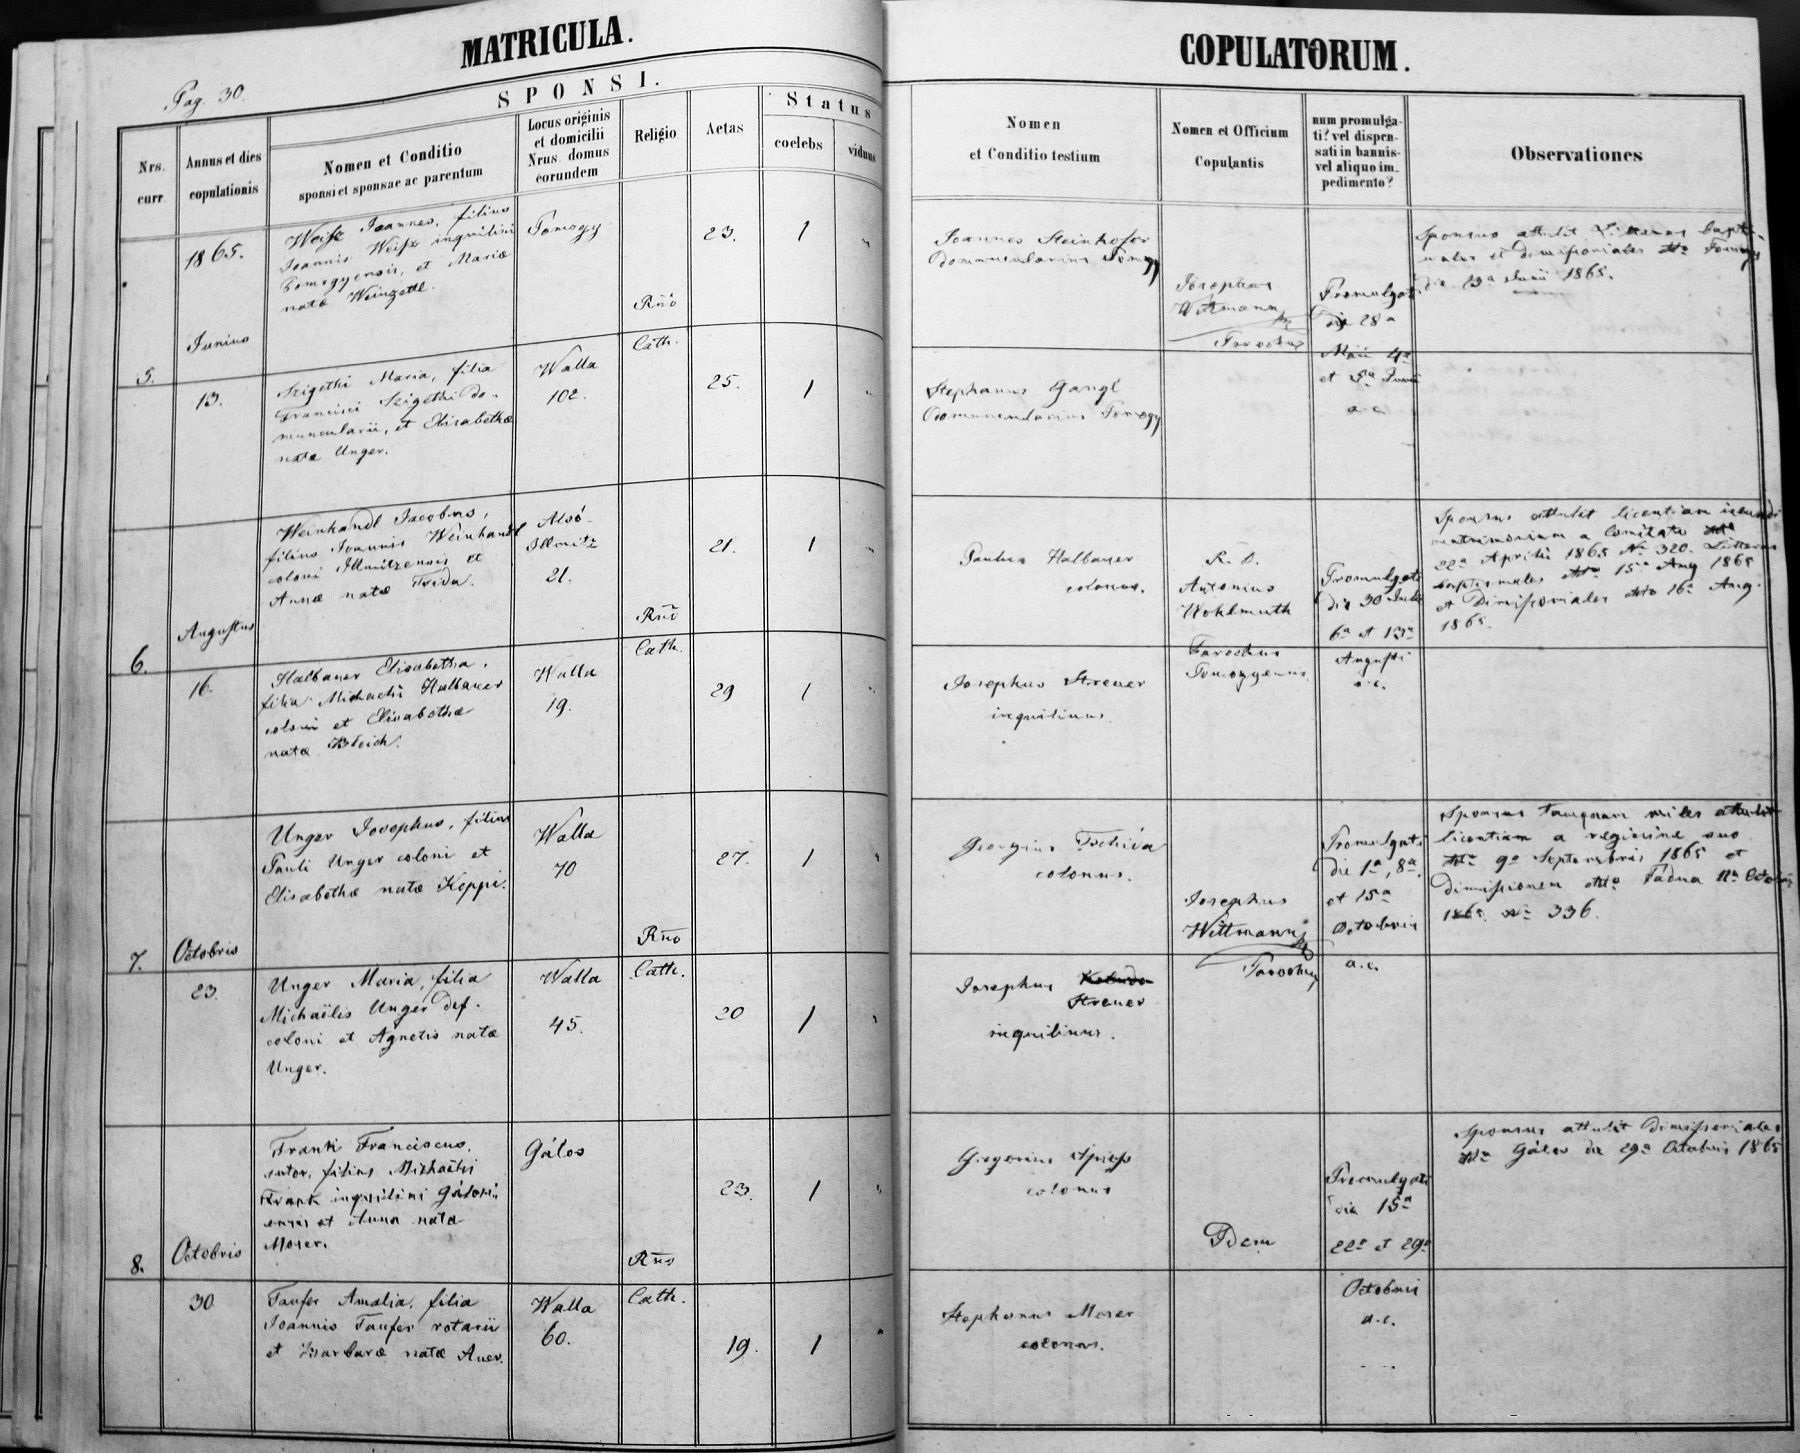 MATRICULA.
COPULATORUM.
Pag. 30.
SPONSI.
Nrs.
curr.
Annus et dies
copulationis
Nomen et Conditio
sponsi et sponsae ac parentum
Locus originis
et domicilii
Nrus domus
eorundem
Religio
Aetas
Status
coelebs
viduus
Nomen
et Conditio testium
Nomen et Officium
Copulantis
num promulga-
ti? vel dispen-
sati in bannis-
vel aliquo im-
pedimento?
Observationes
5.
1865.
Junius
13.
Weisz Joannes, filius
Joannis Weisz inquilini
Pomogyensis, et Mariæ
natæ Weinzettl.
Pomogy
Rño
Cath.
23.
1
"
Joannes Steinhofer
Domuncularius Pomogy
Josephus
Wittmann
Parochus
Promulgati
die 28a
Maii 4a
et 5a Junii
a.c.
Sponsus attulit Litteras bapti-
males et dimissoriales Pomogy
die 13a Junii 1865.
Szigethi Maria, filia
Francisci Szigethi do-
muncularii, et Elisabethæ
natæ Unger.
Walla
102.
25.
1
"
Stephanus Gangl
Domuncularius Pomogy
6.
Augustus
16.
Weinhandl Jacobus,
filius Joannis Weinhandl
coloni Illmitzensis et
Annæ natæ Frida.
Alsó-
Illmitz
21.
Rño
Cath.
21.
1
"
Paulus Halbauer
colonus.
R. D.
Antonius
Wohlmuth
Parochus
Pomogyensis
Promulgati
die 30 Julii
6a et 13a
Augusti
a.c.
Sponsus attulit licentiam ineundi
matrimonium a Comitatu
22a Aprilis 1865 No 320. Litteras
baptismales 15a Aug 1865
et Dimissoriales 16a Aug.
1865.
Halbauer Elisabetha,
filia Michaelis Halbauer
coloni et Elisabethæ
natæ Bleich.
Walla
19.
29
1
"
Josephus Streuer
inquilinus.
7.
Octobris
23.
Unger Josephus, filius
Pauli Unger coloni et
Elisabethæ natæ Koppi.
Walla
70
Rño
Cath.
27.
1
"
Georgius Tschida
colonus.
Josephus
Wittmann
Parochus
Promulgati
die 1a, 8a,
et 15a
Octobris
a.c.
Sponsus tamquam miles attulit
licentiam a regimine suo
9a Septembris 1865 et
dimissionem Padua 11a Octobris
1865. No 336.
Unger Maria, filia
Michaëlis Unger def.
coloni et Agnetis natæ
Unger.
Walla
45.
20
1
"
Josephus
Streuer
inquilinus.
8.
Octobris
30
Frank Franciscus,
sutor, filius Michaëlis
Frank inquilini Gálosi-
ensis et Anna nata
Moser.
Gálos
Rño
Cath.
23.
1
"
Gregorius Spiess
colonus
Idem
Promulgati
die 15a
22a et 29a
Octobris
a.c.
Sponsus attulit Dimissoriales
Gálos die 29a Octobris 1865
Taufer Amalia, filia
Joannis Taufer rotarii
et Barbaræ natæ Auer.
Walla
60.
19.
1
"
Stephanus Moser
colonus.